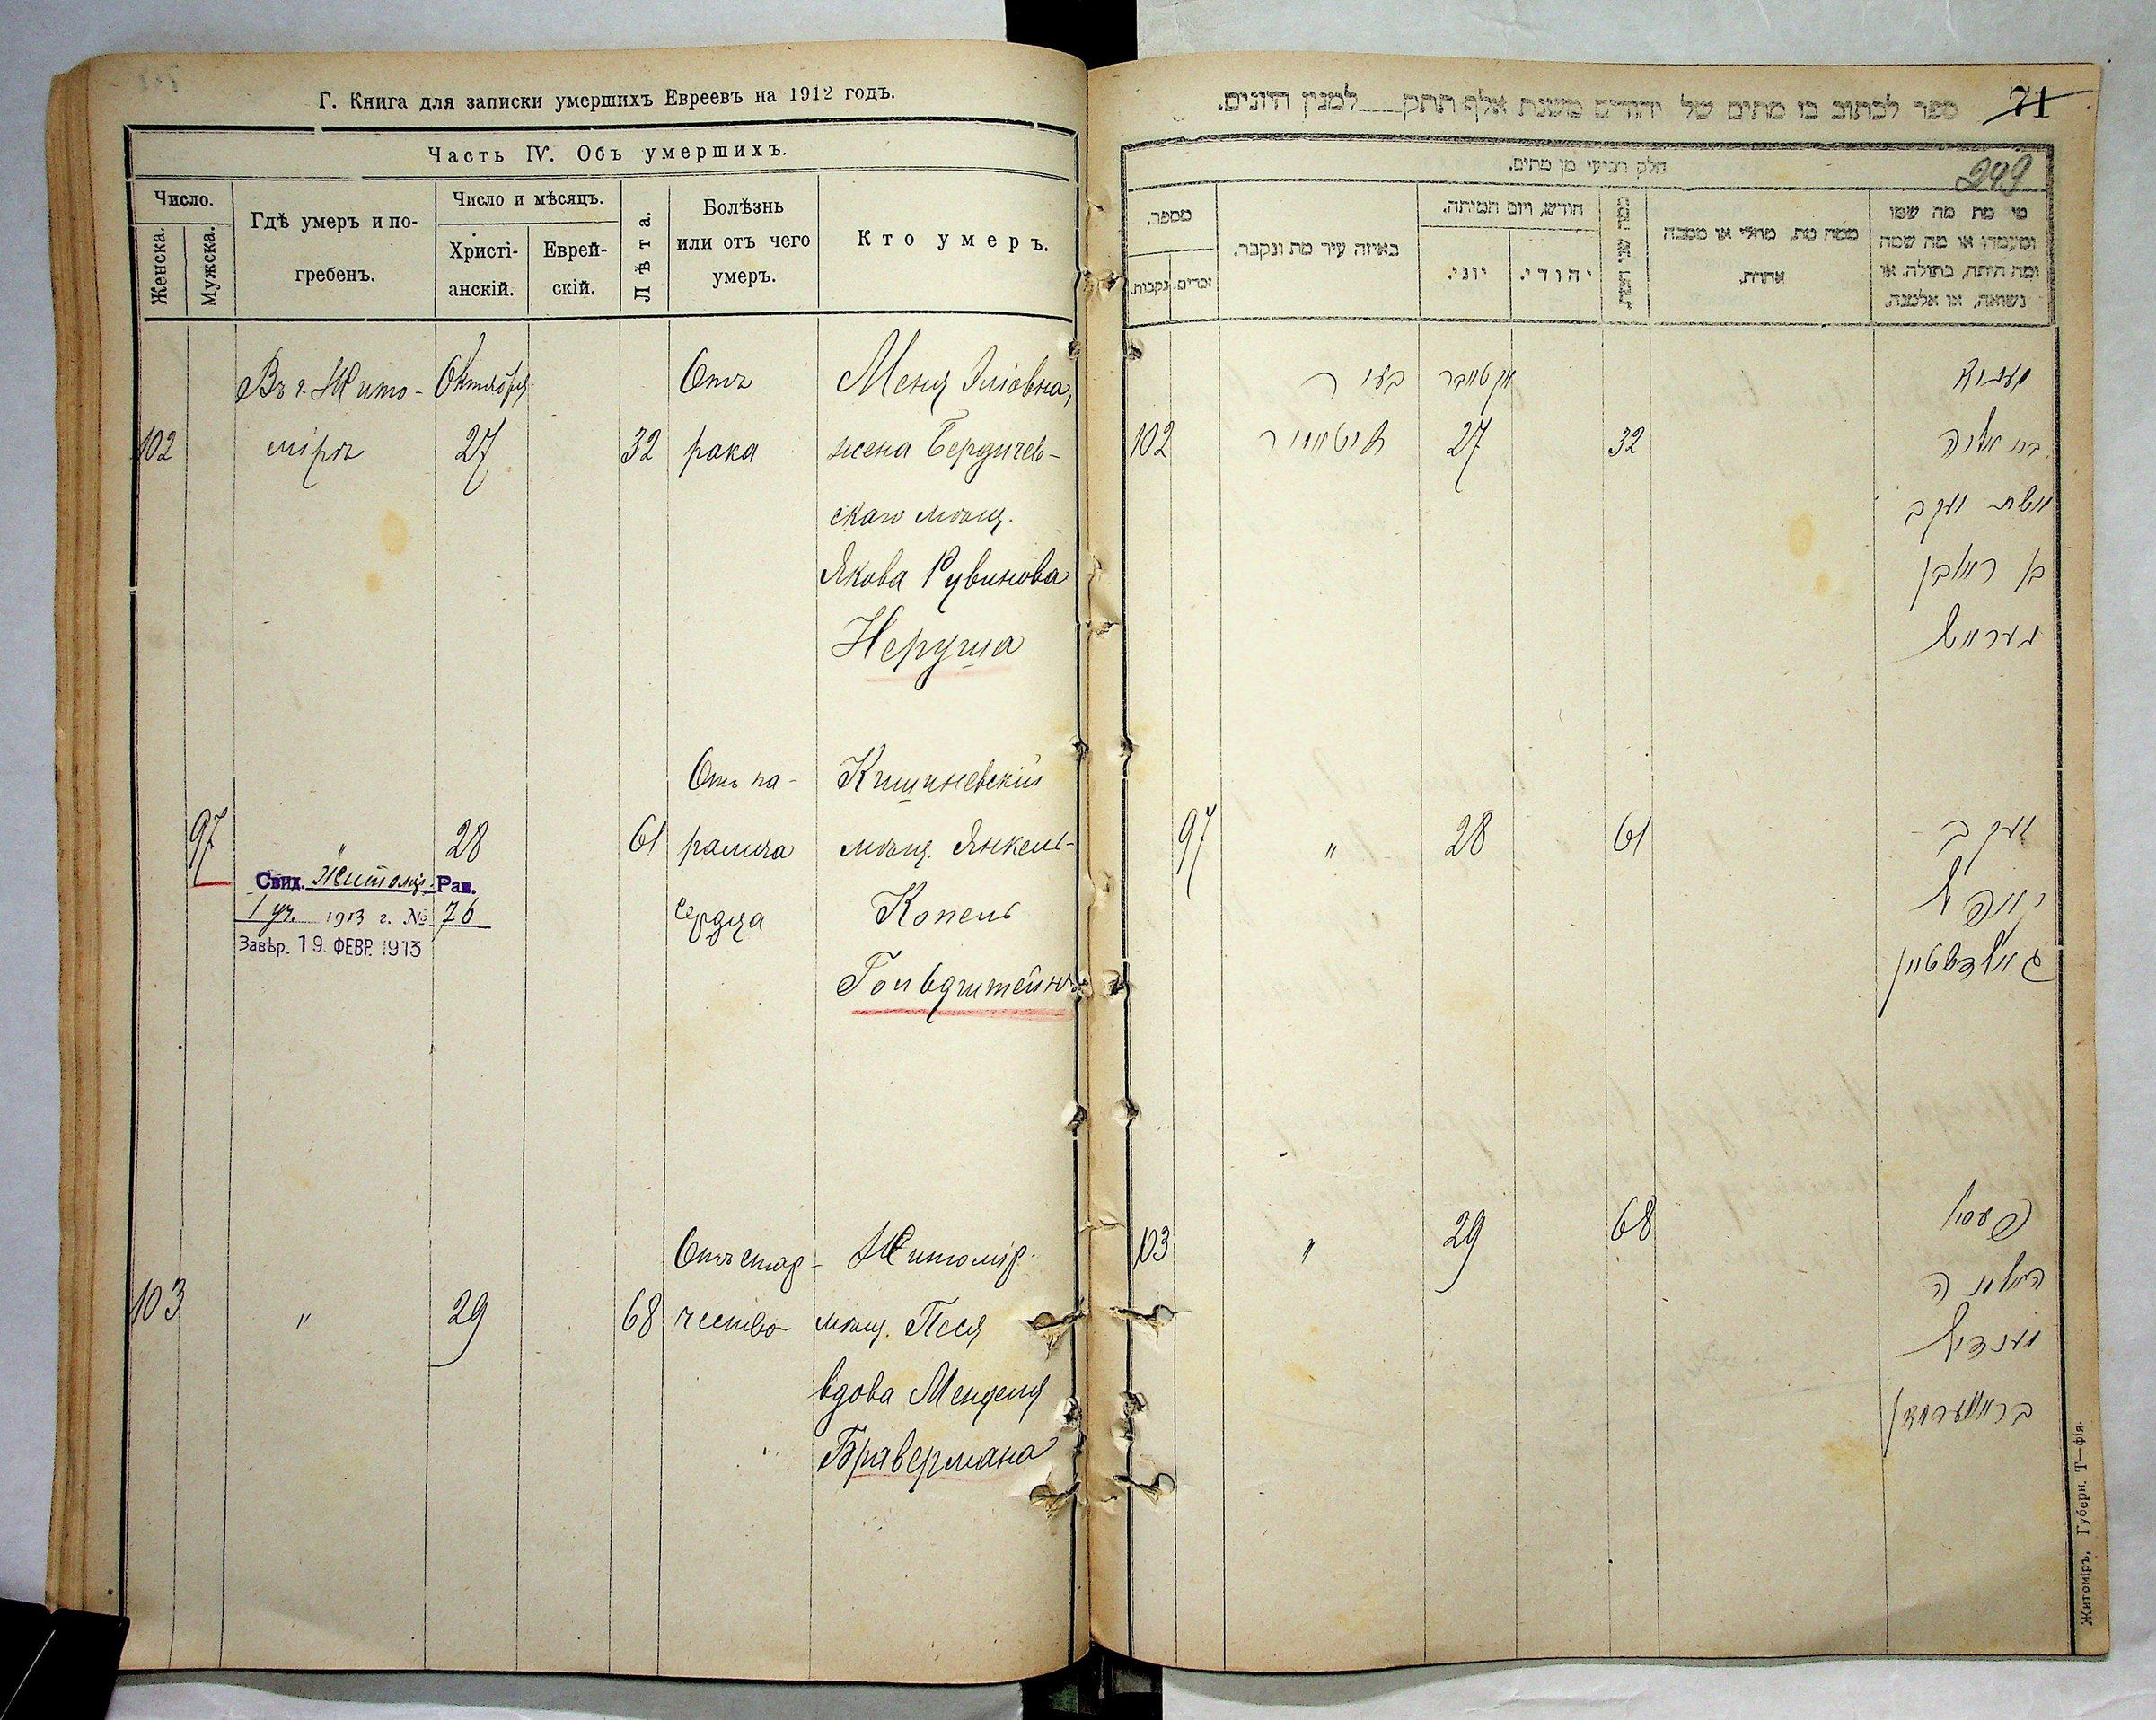 Г. Книга для записки умершихъ Евреевъ на 1912 годъ.
Часть IV. Объ умершихъ.
Число.
Женска.
Мужска.
Гдѣ умеръ и по-
гребенъ.
Число и мѣсяцъ.
Христі-
анскій.
Еврей-
скій.
Лѣта.
Болѣзнь
или отъ чего
умеръ.
Кто умеръ.
Въ г. Жито- Октября Отъ Меня Эліовна,
102 мірѣ 27 32 рака жена Бердичев-
скаго мѣщ.
Якова Рувинова
Неруша
Отъ па- Кишиневскій
97 " 28 61 ралича мѣщ. Янкель-
сердца Копель
Гольдштейнъ
Свид. Житомір. Рав.
1 уч. 1913 г. № 76
Завѣр. 19. ФЕВР. 1913
Отъ стар- Житомір.
103 " 29 68 чества мѣщ. Песя
вдова Менделя
Бравермана
ספר לכתוב בו מתים של יהודים משנת אלף תתק למנין היונים.
71
חלק רביעי מן מתים.
299
מספר.
זכרים.
נקבות.
באיזה עיר מת ונקבר.
חודש, ויום המיתה.
יוני.
יהודי.
כמה שני חייו
ממה מת, מחלי או מסבה
אחרת.
מי מת מה שמו
ומעמדו או מה שמה
ומה היתה, בתולה, או
נשואה, או אלמנה.
בעיר אקטאבר
102 זיטאמיר 27 32 בת אליה
אשת יעקב
בן ראובן
נערוש
97 " 28 61 יעקב
קאפיל
גאלדשטיין
103 " 29 68 פעסי
אלמנה
מענדיל
בראווערמאן
Житоміръ, Губерн. Т—фія.